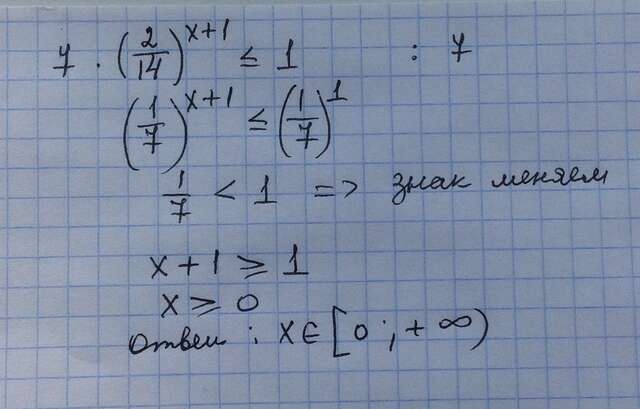 7 · (2/14)^(x+1) ≤ 1 : 7
(1/7)^(x+1) ≤ (1/7)^1
1/7 < 1 => знак меняем
x + 1 ≥ 1
x ≥ 0
ответ : x ∈ [0 ; + ∞)